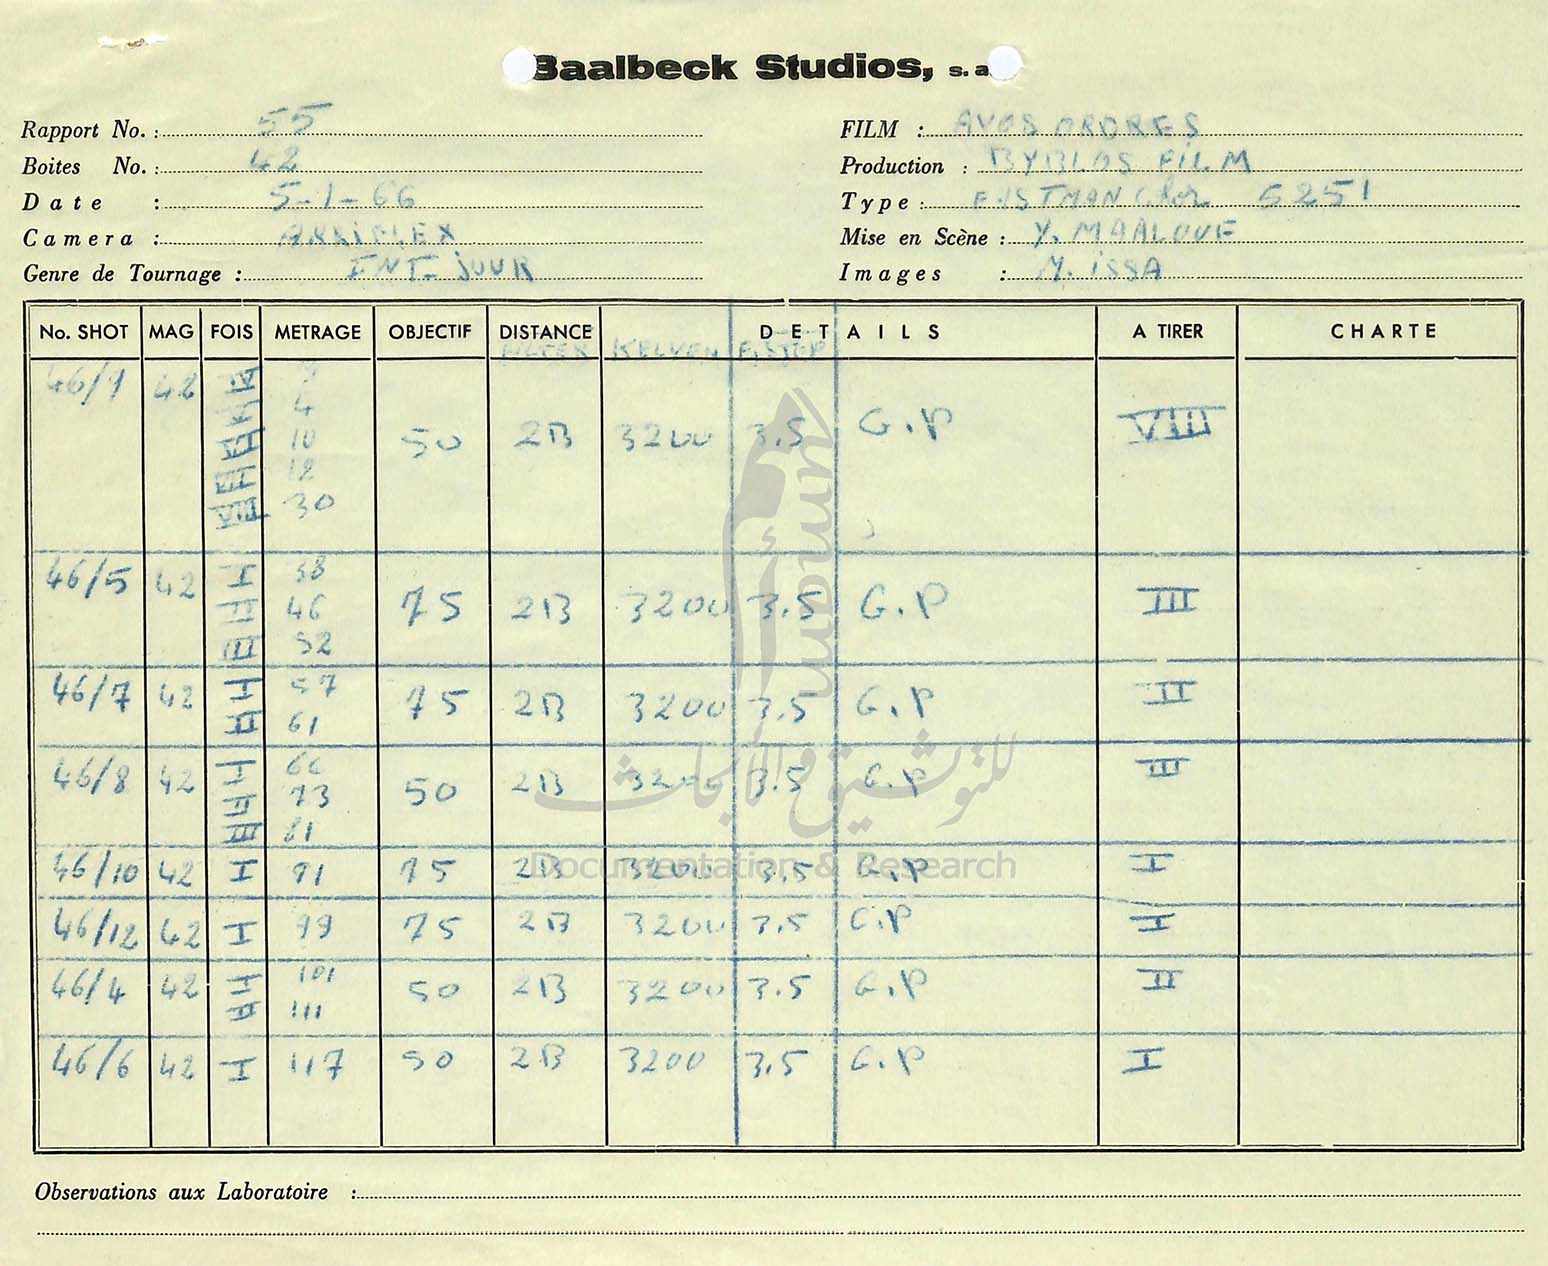 Baalbeck Studios, s. a
Rapport No. : 55
FILM : AVOS ORDRES
Boites No. : 42
Production : BYBLOS FILM
Date : 5-1-66
Type : EASTMAN Color 5251
Camera : ARRIFLEX
Mise en Scène : Y. MAALOUF
Genre de Tournage : INT- JOUR
Images : M. ISSA
No. SHOT MAG FOIS METRAGE OBJECTIF DISTANCE DETAILS A TIRER CHARTE
FILTER KELVEN F.STOP
46/1 42
4
10 50 2B 3200 3.5 G.P VIII
12
VIII 30
46/5 42 I 38
II 46 75 2B 3200 3.5 G.P III
III 52
46/7 42 I 57 75 2B 3200 3.5 G.P II
II 61
46/8 42 I 66
II 73 50 2B 3200 3.5 G.P III
III 81
46/10 42 I 91 75 2B 3200 3.5 G.P I
46/12 42 I 99 75 2B 3200 3.5 G.P I
46/4 42 I 101 50 2B 3200 3.5 G.P II
II 111
46/6 42 I 117 50 2B 3200 3.5 G.P I
umam
أمم
للتوثيق والأبحاث
Documentation & Research
Observations aux Laboratoire :